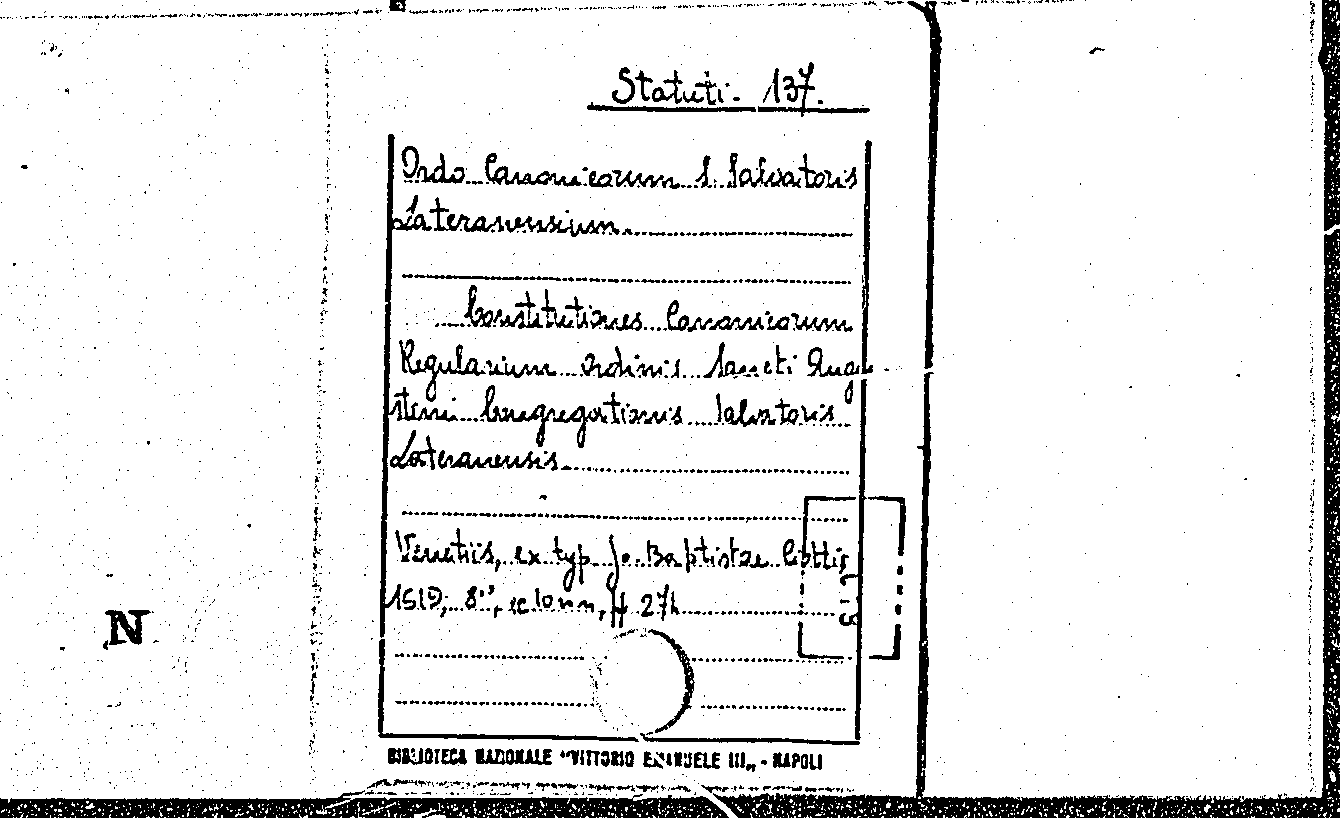 Statuti. 137.
Ordo Canonicorum S. Salvatoris
Lateranensium.
Constitutiones Canonicorum
Regularium Ordinis Sancti Augu-
stini Congregationis Salvatoris
Lateranensis.
Venetiis, ex typ. Jo. Baptistae
8°, ff 27
N
BIBLIOTECA NAZIONALE "VITTORIO EMANUELE III„ - NAPOLI